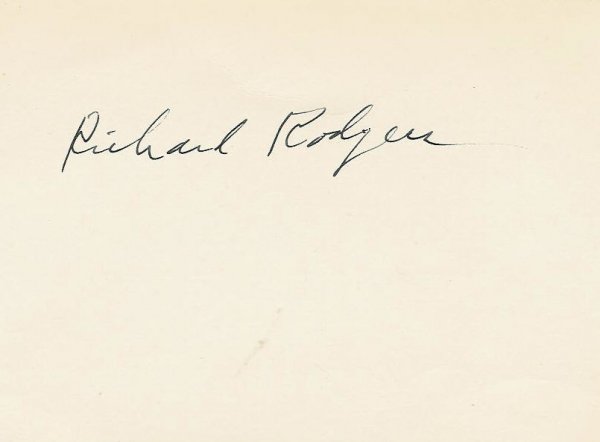 Richard Rodgers